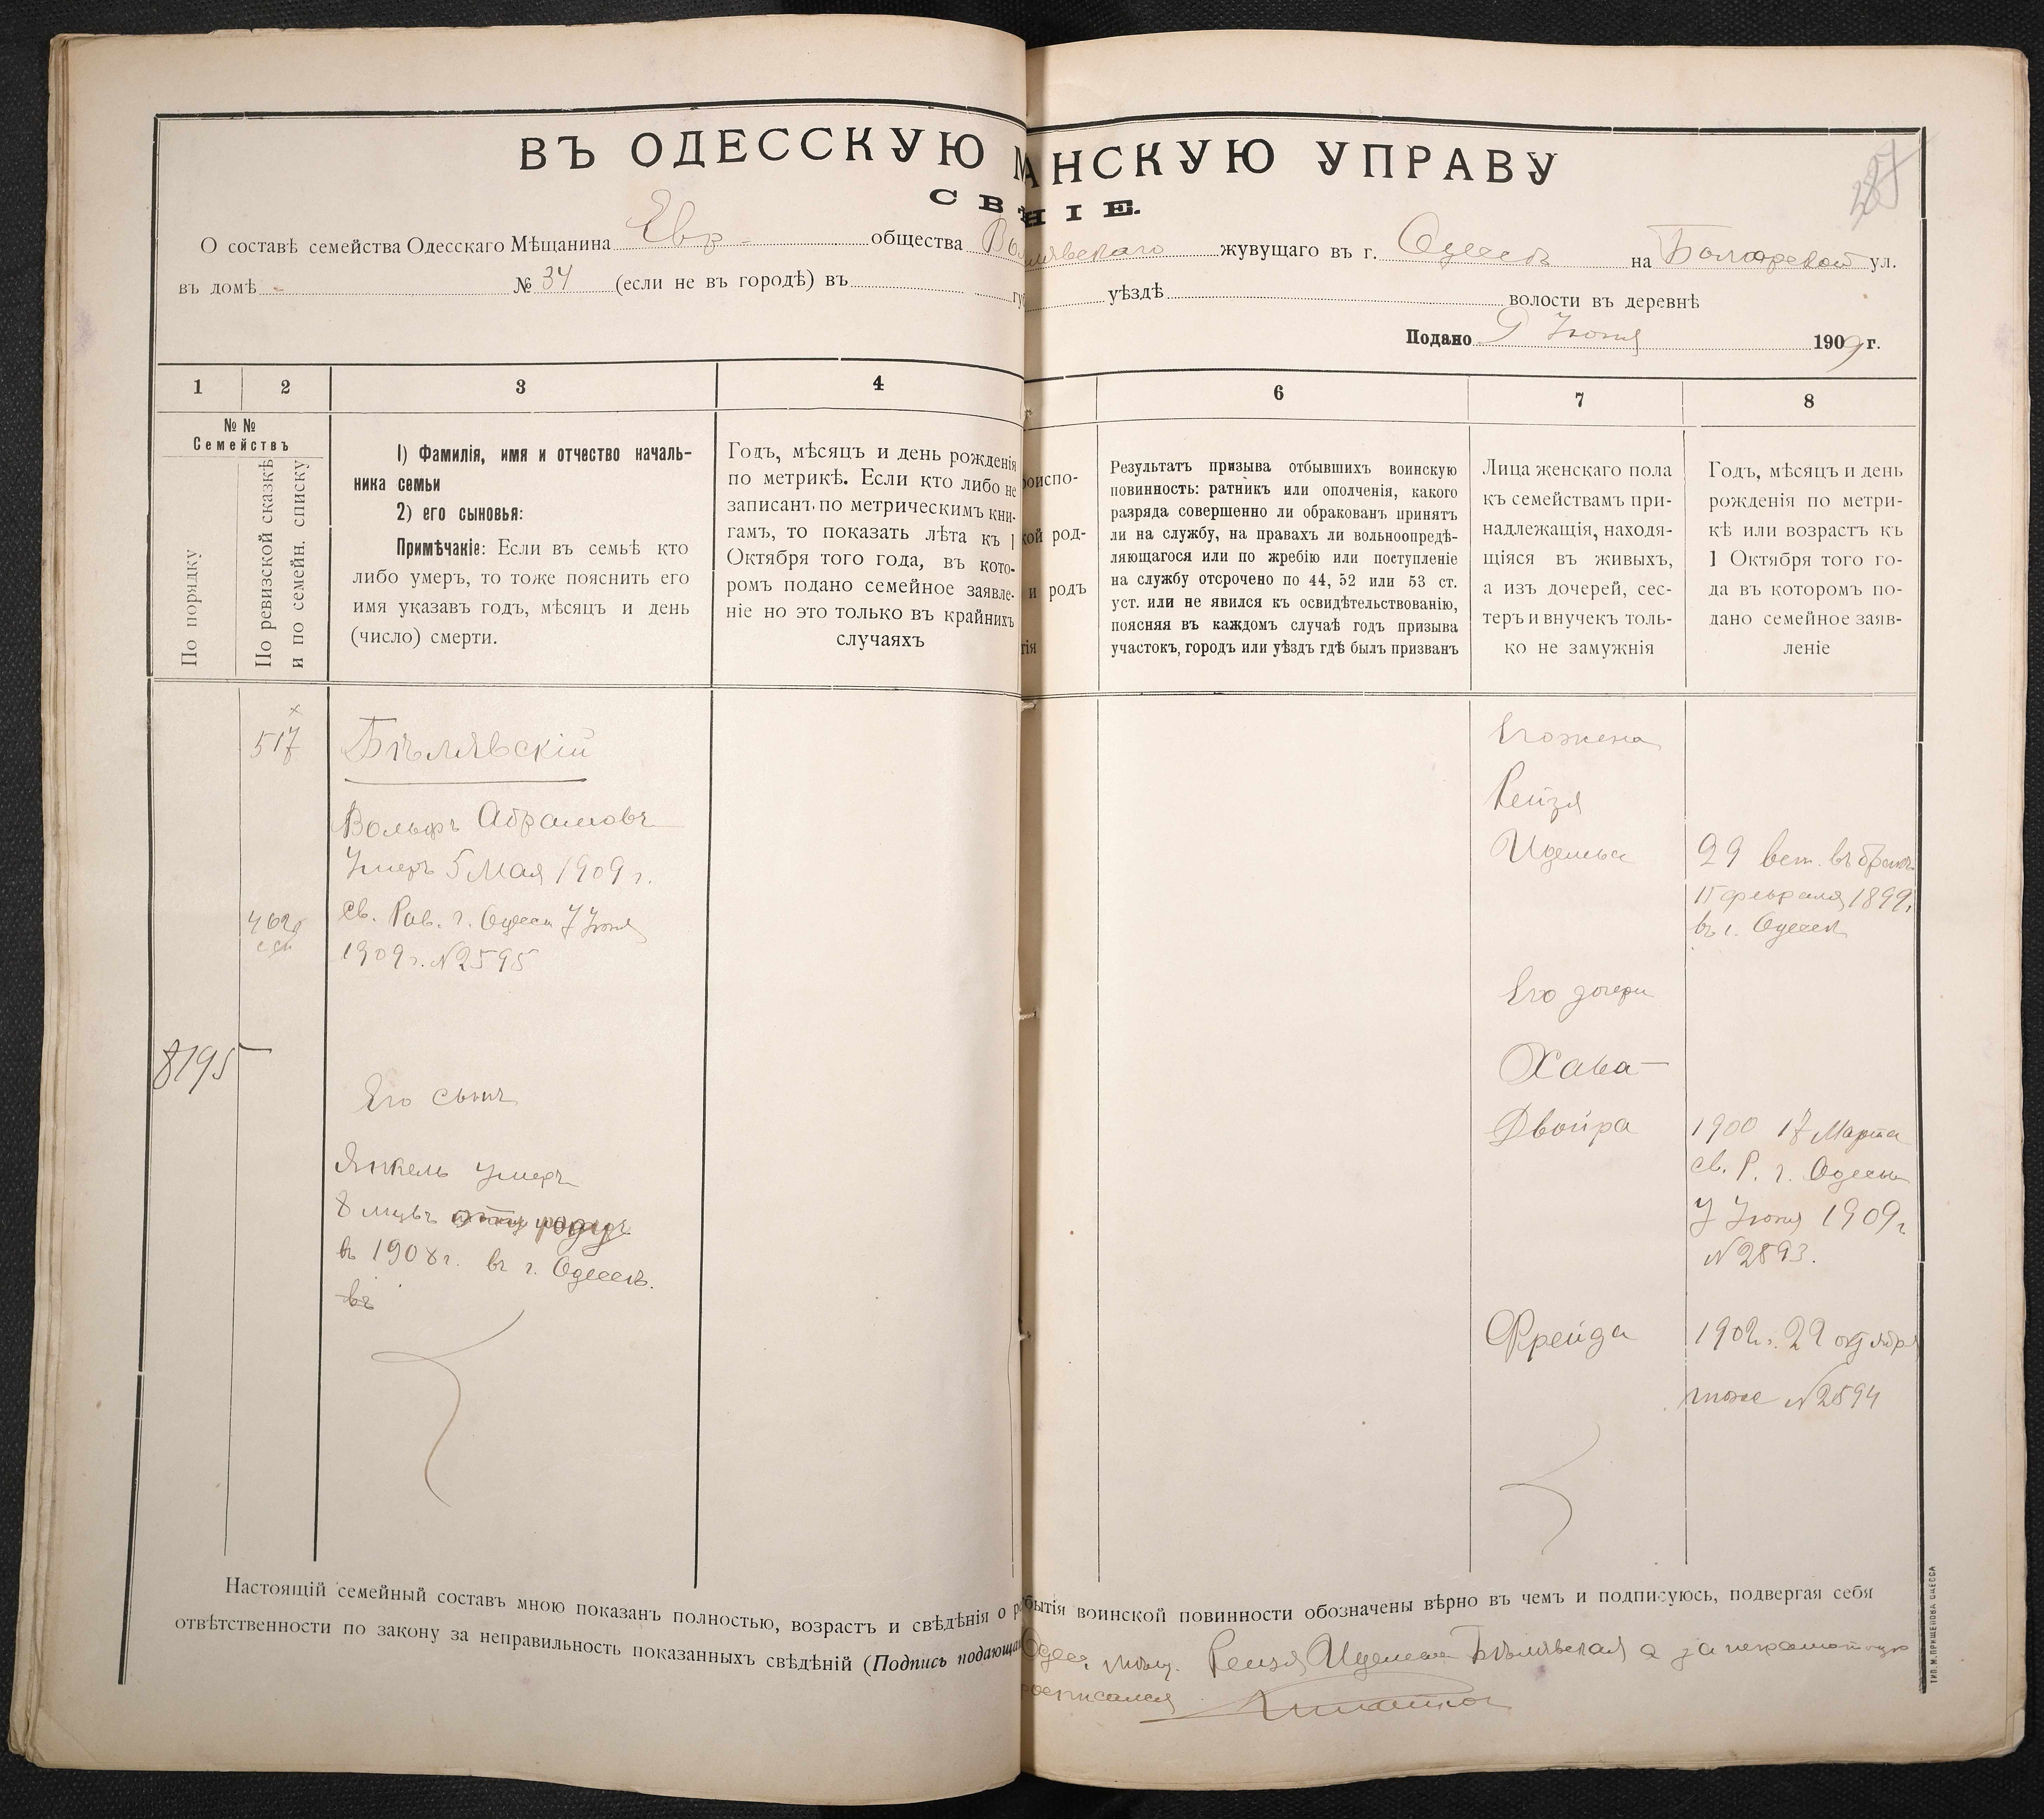 ВЪ ОДЕССКУЮ МѢЩАНСКУЮ УПРАВУ
287
О составѣ семейства Одесскаго Мѣщанина Евр- общества жувущаго въ г. Одессѣ на Болгарской ул.
въ домѣ - № 34 (если не въ городѣ) въ уѣздѣ волости въ деревнѣ
Подано 9 Іюня 1909 г.
1 2 3 4 6 7 8
№№
Семействъ
По порядку
По ревизской сказкѣ
и по семейн. списку
1) Фамилія, имя и отчество началь-
ника семьи
2) его сыновья:
Примѣчакіе: Если въ семьѣ кто
либо умеръ, то тоже пояснить его
имя указавъ годъ, мѣсяцъ и день
(число) смерти.
Годъ, мѣсяцъ и день рожденія
по метрикѣ. Если кто либо не
записанъ по метрическимъ кни-
гамъ, то показать лѣта къ 1
Октября того года, въ кото-
ромъ подано семейное заявле-
ніе но это только въ крайнихъ
случаяхъ
Результатъ призыва отбывшихъ воинскую
повинность: ратникъ или ополченія, какого
разряда совершенно ли обракованъ принятъ
ли на службу, на правахъ ли вольноопредѣ-
ляющагося или по жребію или поступленіе
на службу отсрочено по 44, 52 или 53 ст.
уст. или не явился къ освидѣтельствованію,
поясняя въ каждомъ случаѣ годъ призыва
участокъ, городъ или уѣздъ гдѣ былъ призванъ
Лица женскаго пола
къ семействамъ при-
надлежащія, находя-
щіяся въ живыхъ,
а изъ дочерей, сес-
теръ и внучекъ толь-
ко не замужнія
Годъ, мѣсяцъ и день
рожденія по метри-
кѣ или возрастъ къ
1 Октября того го-
да въ которомъ по-
дано семейное заяв-
леніе
517
Бѣлявскій
Вольфъ Абрамовъ
Умеръ 5 Мая 1909 г.
св. Рав. г. Одессы 7 Іюня
1909 г. №2595
8195
Его сынъ
Янкель умеръ
8 мцвъ
въ 1908 г. въ г. Одессѣ.
въ
Его жена
Рейзя
Идельва
29 лет. въ бракѣ
15 февраля 1899 г.
въ г. Одессѣ
Его дочери
Хава-
Двойра
1900 17 Марта
св. Р. г. Одессы
7 Іюня 1909 г
№2593.
Фрейда
1902 г. 22 октября
тоже №2594
Настоящій семейный составъ мною показанъ полностью, возрастъ и свѣдѣнія о бытія воинской повинности обозначены вѣрно въ чемъ и подписуюсь, подвергая себя
отвѣтственности по закону за неправильность показанныхъ свѣдѣній (Подпись подающа Одес. мѣщ. Рейзя Бѣлявская а за неграмотную
росписался
ТИП. М. ПРИЩЕПОВА ОДЕССА